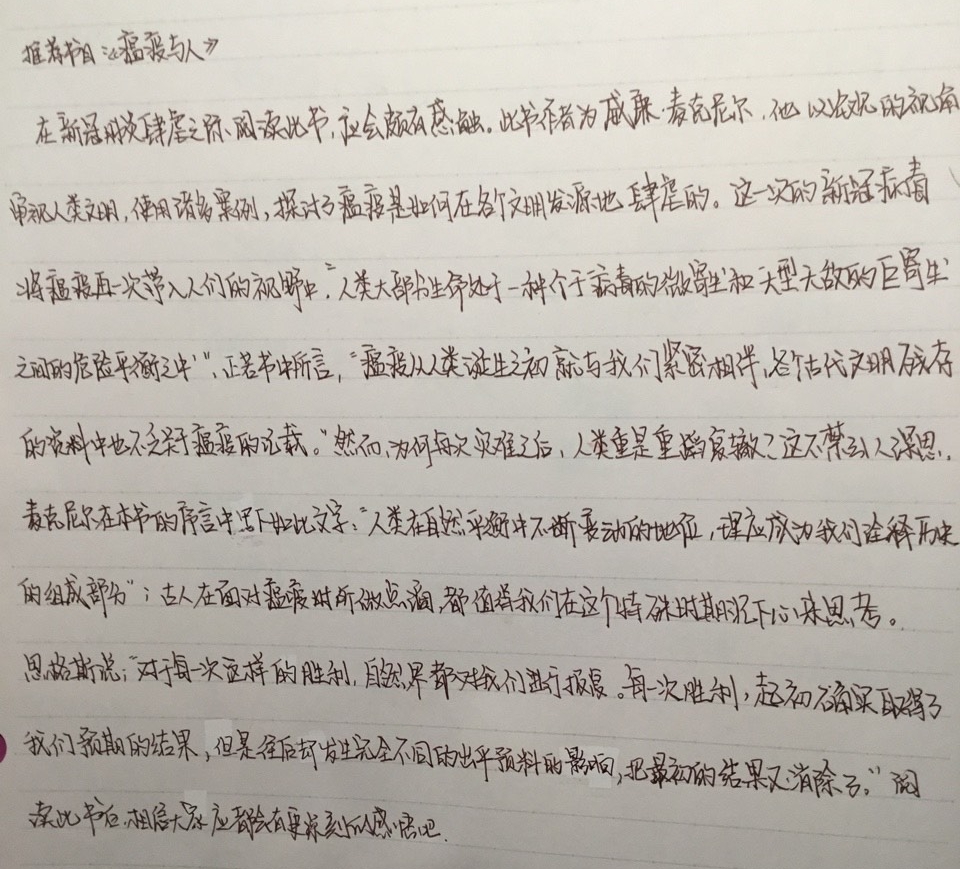 推荐书目：《瘟疫与人》
在新冠肆虐之际阅读此书，应会颇有感触。此书作者为威廉·麦克尼尔，他以宏观的视角
审视人类文明，使用诸多案例，探讨了瘟疫是如何在各个文明发源地肆虐的。这一次的新冠病毒
将瘟疫再一次带入人们的视野中，"人类大部分生命处于一种介于病毒的微寄生和大型天敌的巨寄生
之间的危险平衡之中"，正若书中所言，"瘟疫从人类诞生之初就与我们紧密相伴，各个古代文明残存
的资料中也不乏关于瘟疫的记载。"然而，为何每次灾难之后，人类重是重蹈复辙？这不禁引人深思。
麦克尼尔在本书的序言中写下如此文字："人类在自然平衡中不断变动的地位，理应成为我们诠释历史
的组成部分"；古人在面对瘟疫时所做点滴，都值得我们在这个特殊时期沉下心来思考。
恩格斯说："对于每一次这样的胜利，自然界都对我们进行报复。每一次胜利，起初确实取得了
我们预期的结果，但是往后却发生完全不同的出乎预料的影响，把最初的结果又消除了。"阅
读此书后，相信大家应都会有更深刻的感悟吧.